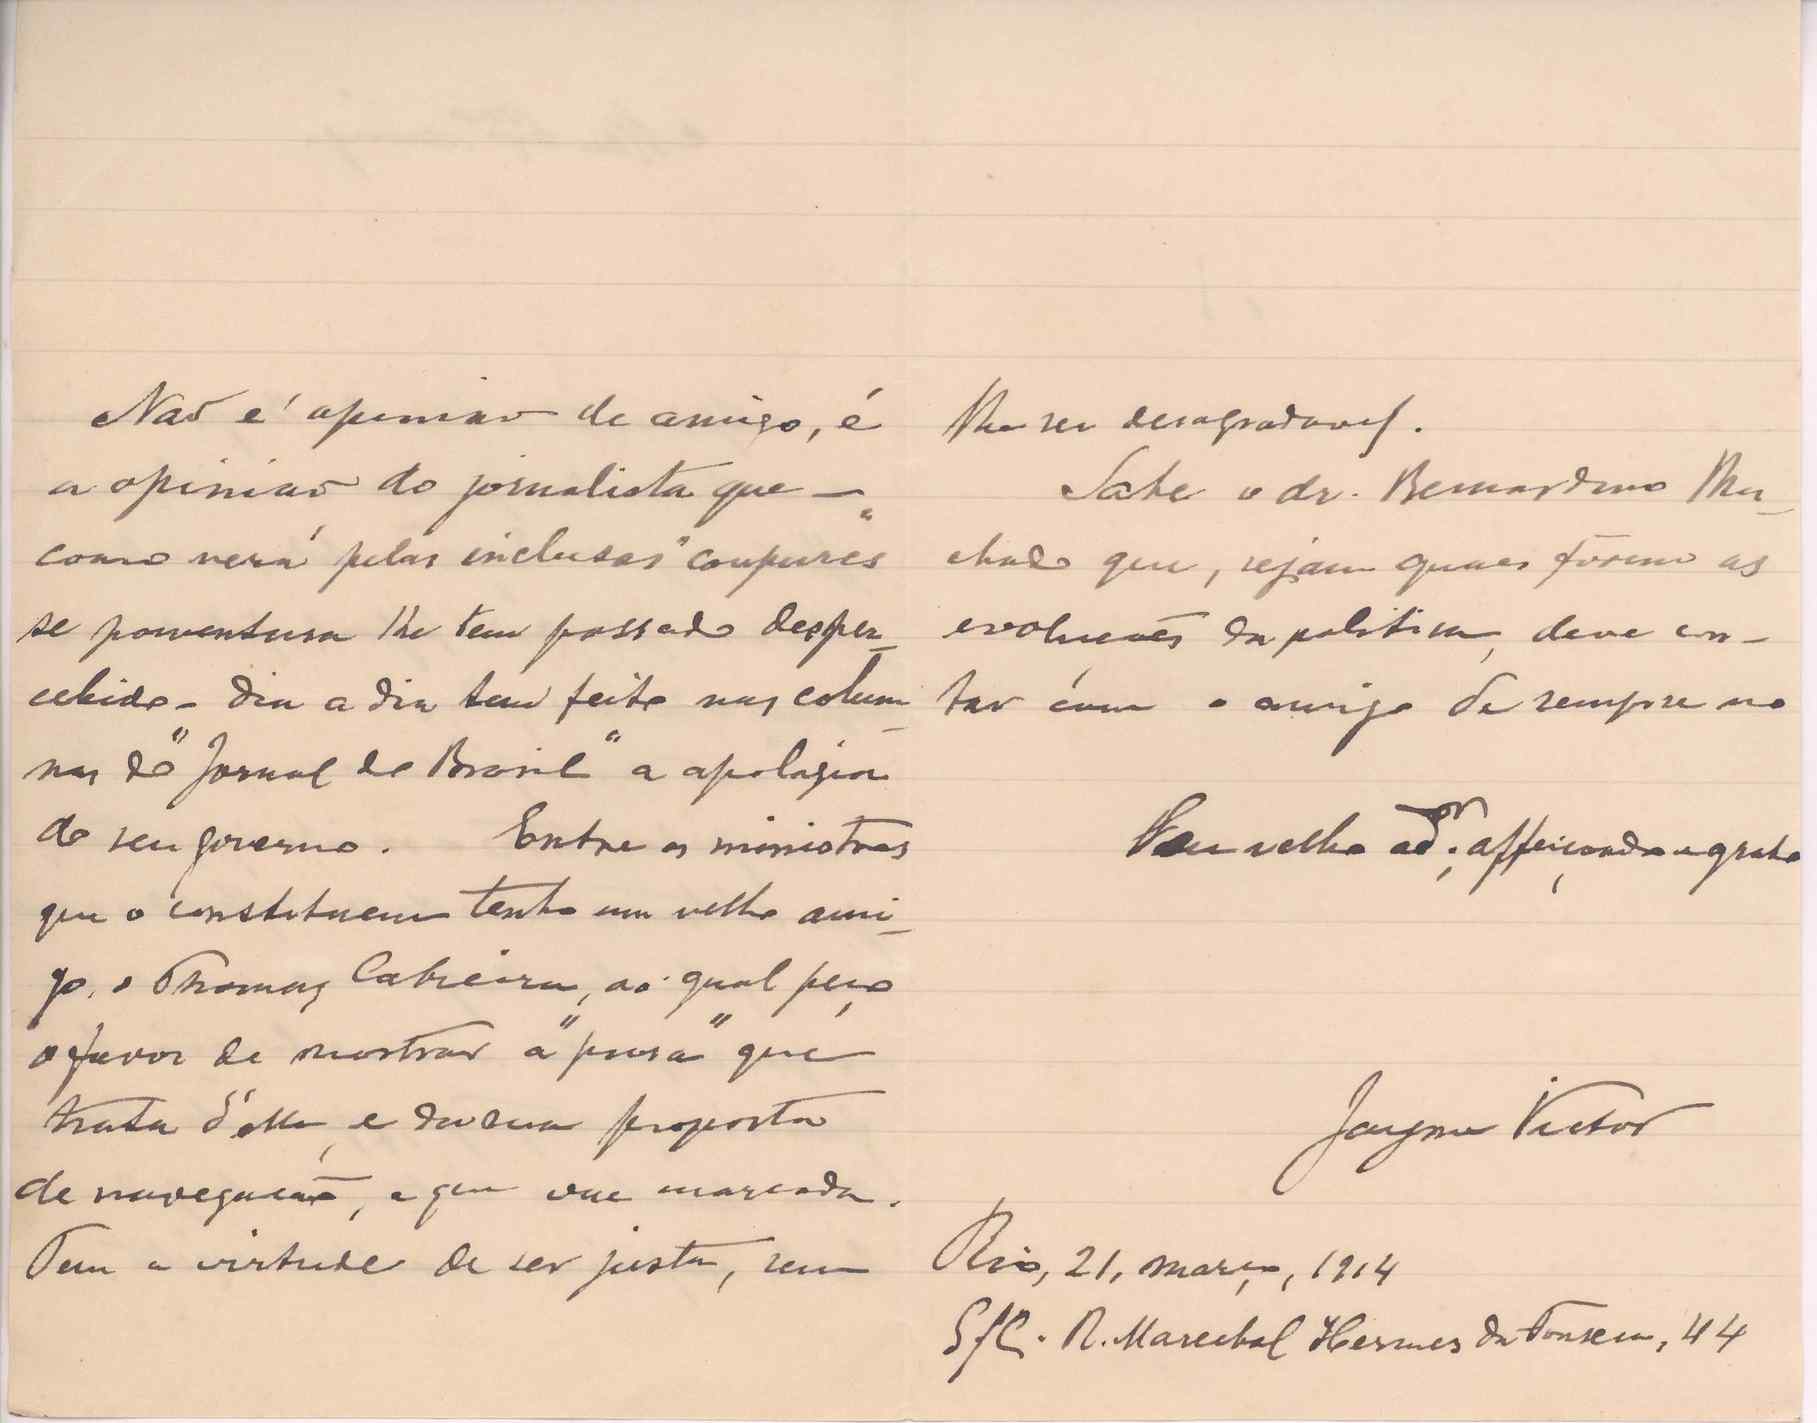 Não é opinião de amigo, é
a opinião do jornalista que –
como verá pelas inclusas "coupures"
se porventura lhe tem passado desper-
cebido – dia a dia tem feito nas colum-
nas do "Jornal do Brasil" a apologia
do seu governo. Entre os ministros
que o constituem tenho um velho ami-
go, o Thomaz Cabreira, ao qual peço
o favor de mostrar a "prosa" que
trata d'elle, e da sua proposta
de navegação, e que vae marcada.
Tem a virtude de ser justa, sem
lhe ser desagradavel.
Sabe o dr. Bernardino Ma-
chado que, sejam quaes fôrem as
evoluções da politica, deve con-
tar com o amigo de sempre no
Seu velho ador. affeiçoado e grato
Jayme Victor
Rio, 21, março, 1914
S/C. R. Marechal Hermes da Fonseca, 44